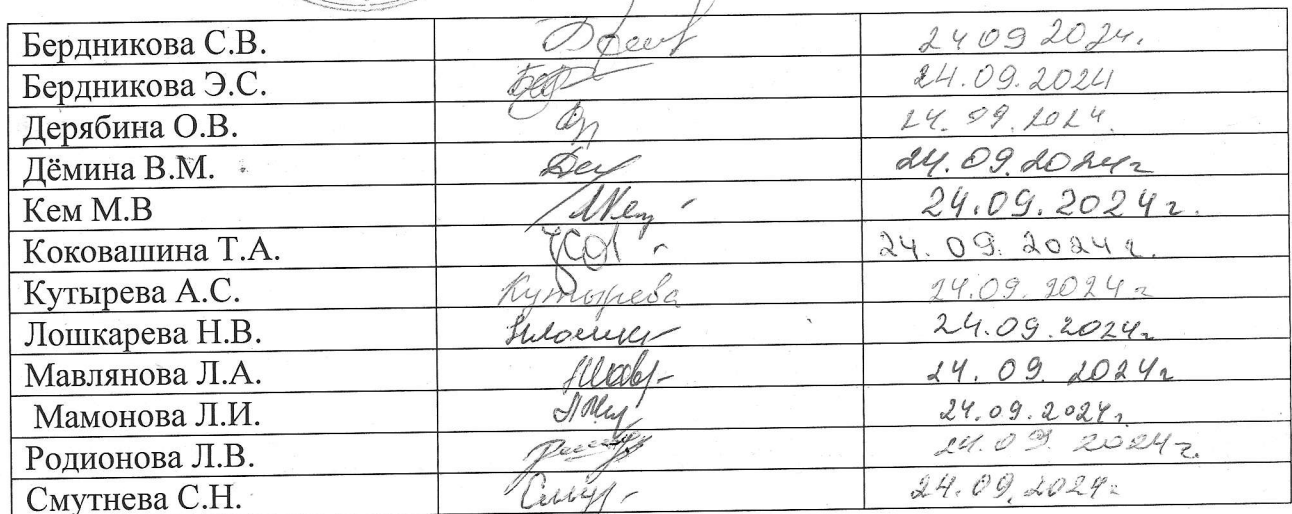 Бердникова С.В. 24 09 2024.
Бердникова Э.С. 24.09.2024
Дерябина О.В. 24.09.2024
Дёмина В.М. 24.09.2024г
Кем М.В 24.09.2024г.
Коковашина Т.А. 24.09.2024г.
Кутырева А.С. Кутырева 24.09.2024г
Лошкарева Н.В. 24.09.2024г
Мавлянова Л.А. 24.09.2024г
Мамонова Л.И. 24.09.2024г
Родионова Л.В. 24.09.2024г.
Смутнева С.Н. 24.09.2024г